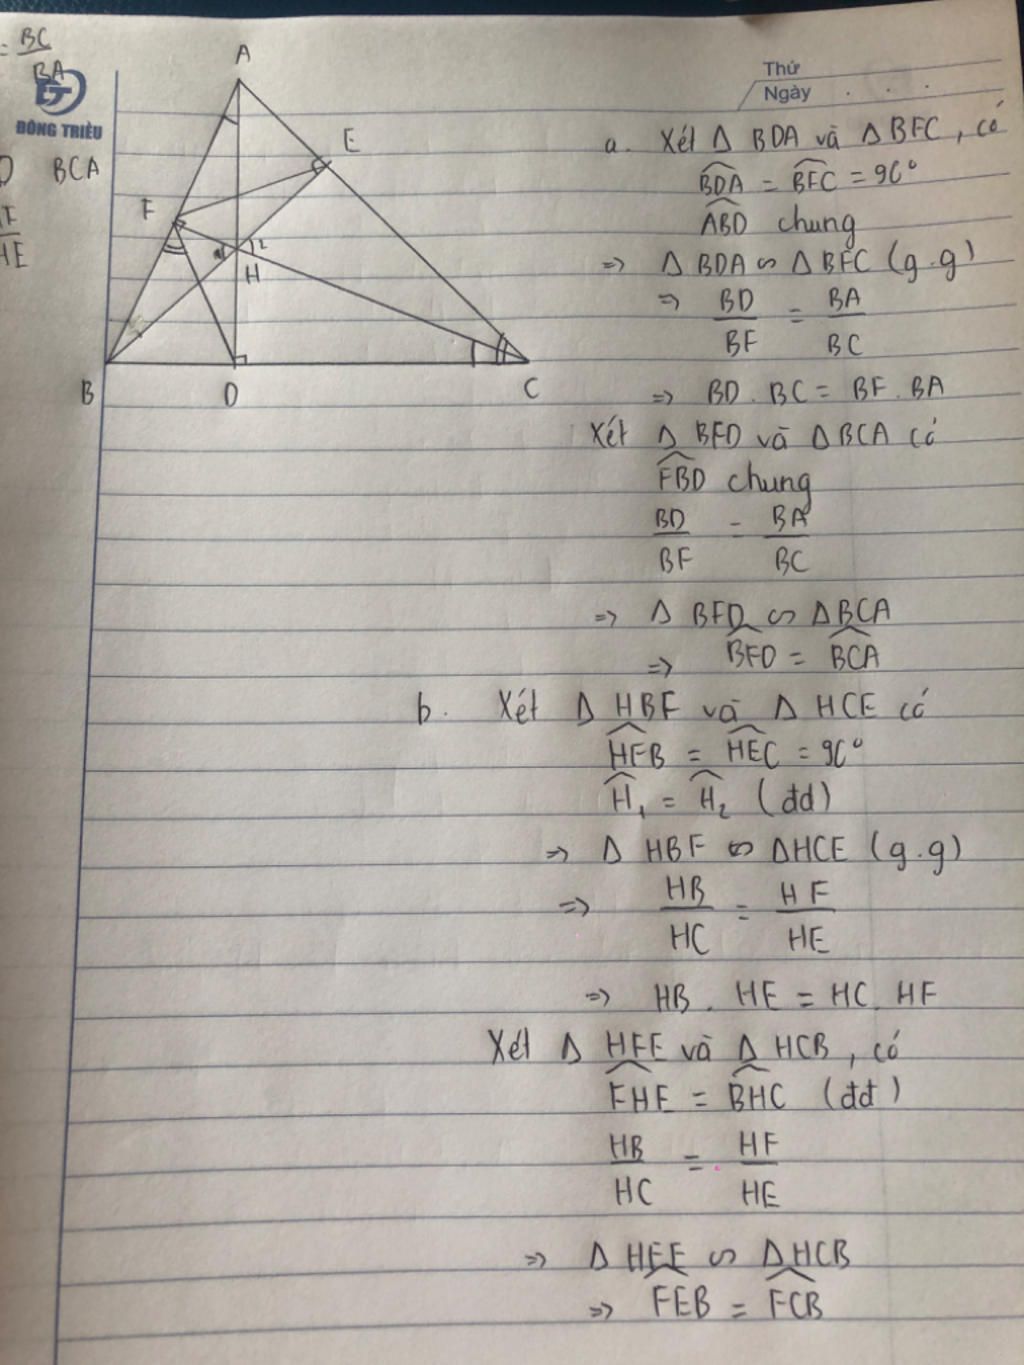 = BC
BA
ĐÔNG TRIỀU
BCA
HE
Thứ
Ngày . . .
A
E
F
H
B D C
a. Xét Δ BDA và Δ BFC, có
BDA = BFC = 90°
ABD chung
=> Δ BDA ∽ Δ BFC (g.g)
=> BD = BA
BF BC
=> BD . BC = BF . BA
Xét Δ BFD và Δ BCA có
FBD chung
BD = BA
BF BC
=> Δ BFD ∽ Δ BCA
=> BFD = BCA
b. Xét Δ HBF và Δ HCE có
HFB = HEC = 90°
H₁ = H₂ (đđ)
=> Δ HBF ∽ Δ HCE (g.g)
=> HB = HF
HC HE
=> HB . HE = HC . HF
Xét Δ HFE và Δ HCB, có
FHE = BHC (đđ)
HB = HF
HC HE
=> Δ HFE ∽ Δ HCB
=> FEB = FCB